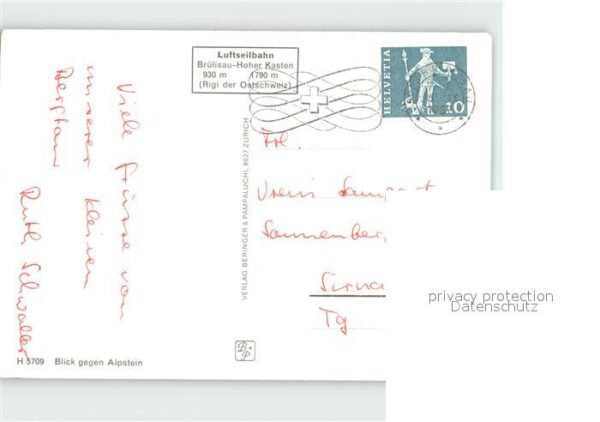 Luftseilbahn
Brülisau-Hoher Kasten
930 m 1790 m
(Rigi der Ostschweiz)
HELVETIA
10
Viele Grüsse von
unserer kleinen
Bergtour
Ruth Schwaller
VERLAG BERINGER & PAMPALUCHI, 8027 ZÜRICH
Frl.
Vreni
Sonnenber
Sirna
Tg
B-P
H 5709 Blick gegen Alpstein
privacy protection
Datenschutz